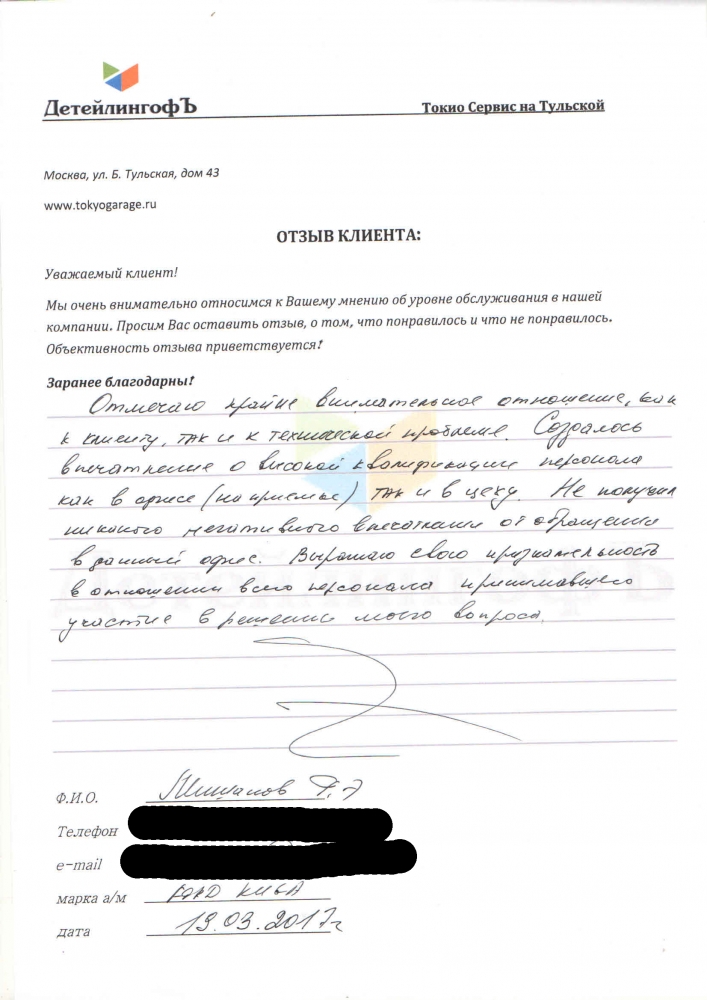 ДетейлингофЪ
Токио Сервис на Тульской
Москва, ул. Б. Тульская, дом 43
www.tokyogarage.ru
ОТЗЫВ КЛИЕНТА:
Уважаемый клиент!
Мы очень внимательно относимся к Вашему мнению об уровне обслуживания в нашей
компании. Просим Вас оставить отзыв, о том, что понравилось и что не понравилось.
Объективность отзыва приветствуется!
Заранее благодарны!
Отмечаю крайне внимательное отношение, как
к клиенту, так и к технической проблеме. Создалось
впечатление о высокой квалификации персонала
как в офисе (на приемке) так и в цеху. Не получил
никакого негативного впечатления от обращения
в данный офис. Выражаю свою признательность
в отношении всего персонала принимавшего
участие в решении моего вопроса.
Ф.И.О.
Телефон
e-mail
марка а/м Форд Куга
дата 19.03.2017г